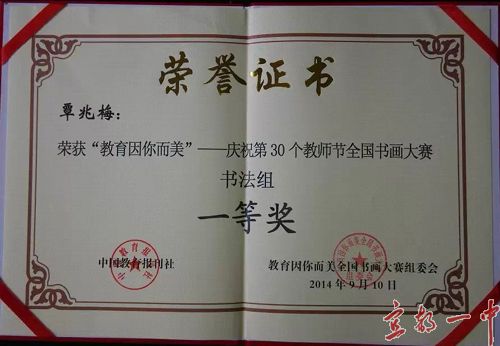 荣誉证书
覃兆梅：
荣获“教育因你而美”——庆祝第30个教师节全国书画大赛
书法组
一等奖
中国教育报刊社
教育因你而美全国书画大赛组委会
2014年9月10日
宜都一中